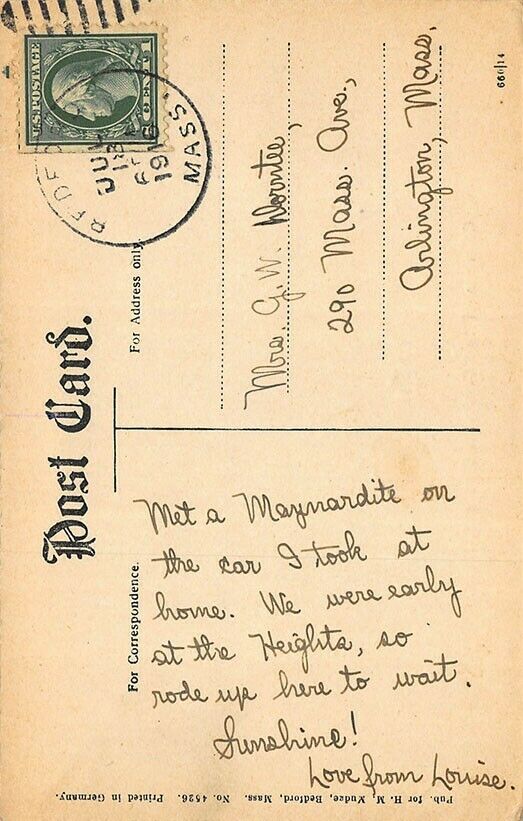 U.S. POSTAGE
1 CENT 1
BEDFORD
JUL
13
1916
MASS.
Post Card.
For Address only.
Mrs. G. W.
290 Mass. Ave.,
Arlington, Mass.
660|14
For Correspondence.
Met a Maynardite on
the car I took at
home. We were early
at the Heights, so
rode up here to wait.
Sunshine!
Love from Louise.
Pub. for H. M. Mudge, Bedford, Mass. No. 4526. Printed in Germany.